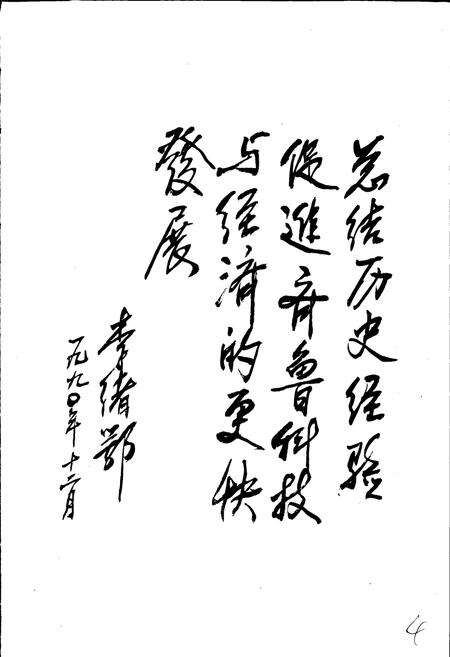 总结历史经验
促進齐鲁科技
与经濟的更快
發展
李绪鄂
一九九〇年十二月
4